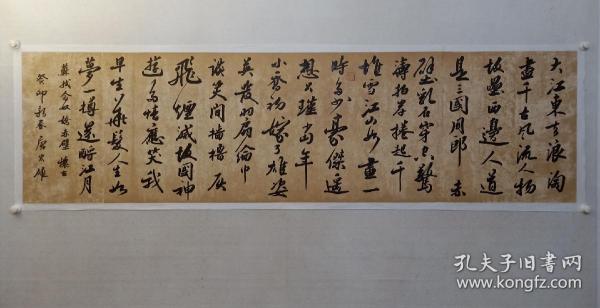 大江東去浪淘
盡千古風流人物
故壘西邊人道
是三國周郎赤
壁亂石穿空驚
濤拍岸捲起千
堆雪江山如畫一
時多少豪傑遙
想公瑾當年
小喬初嫁了雄姿
英發羽扇綸巾
談笑間檣櫓灰
飛煙滅故國神
遊多情應笑我
早生華髮人生如
夢一樽還酹江月
蘇軾念奴嬌赤壁懷古
癸卯新春
孔夫子旧书网
www.kongfz.com